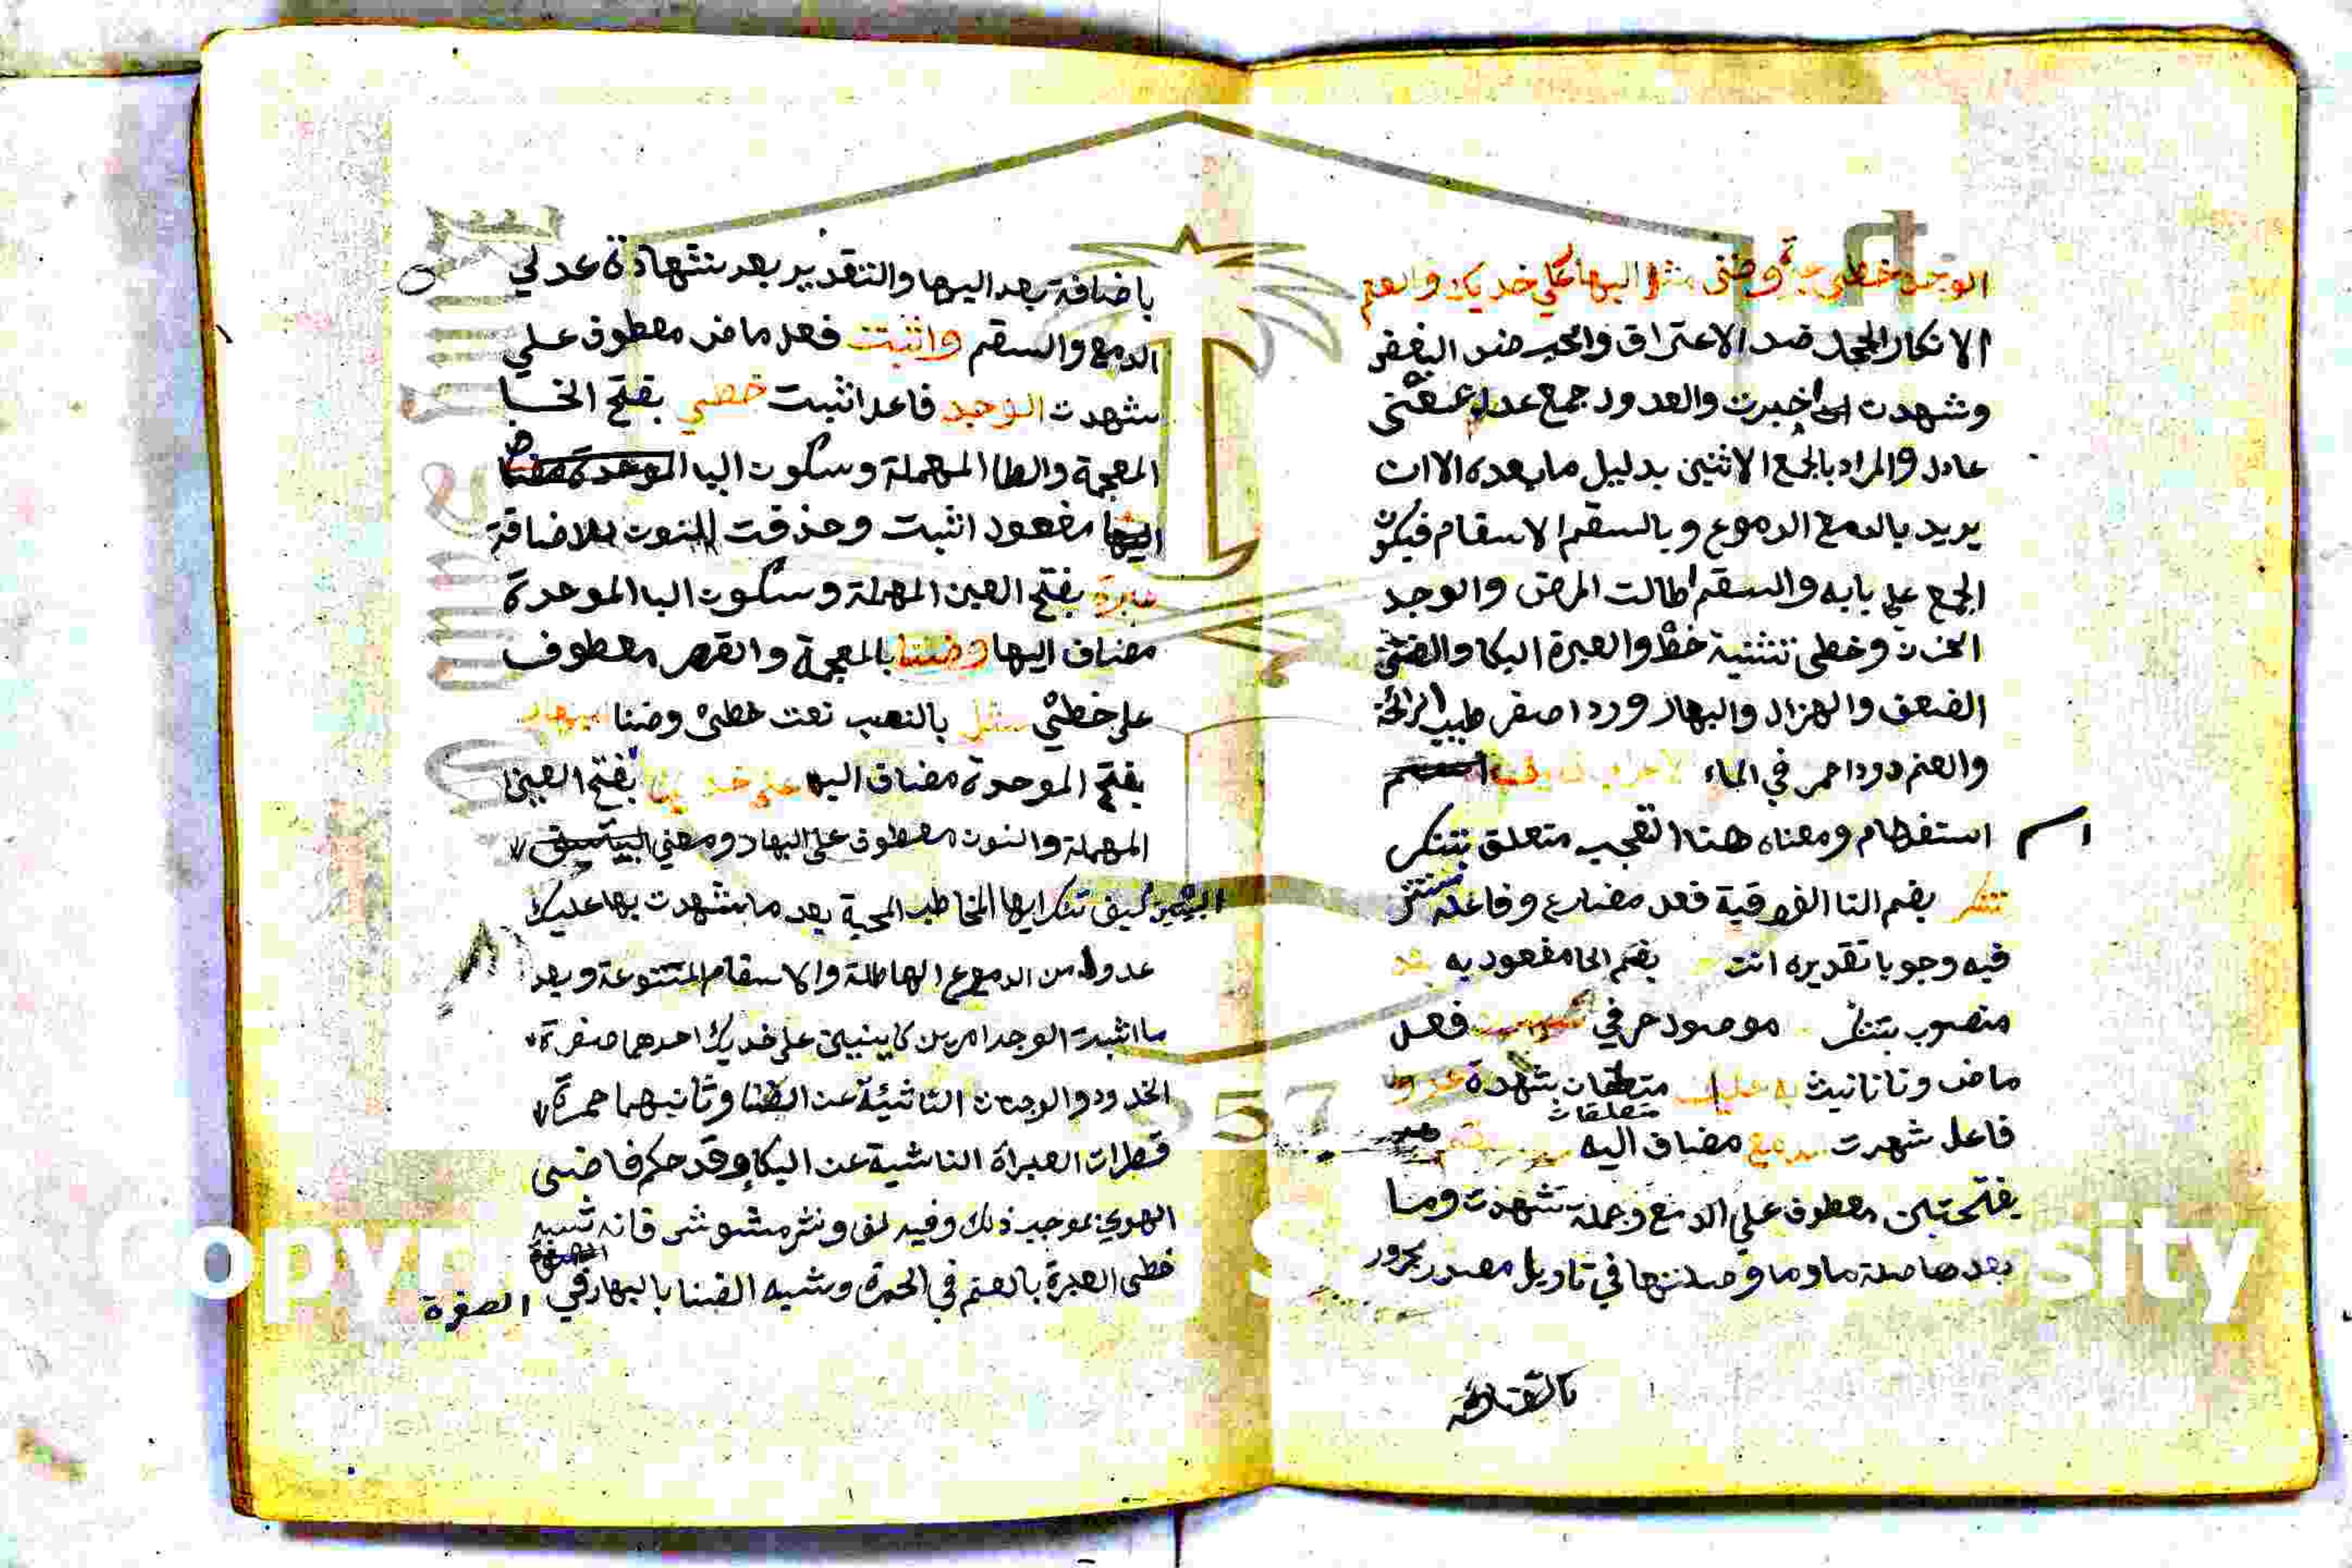 الوجد خطي عبرة وضنى مثل البهار على خديك والعنم
الانكار الجحد ضد الاعتراق والحب ضد البغض
وشهدت اي اخبرت والعدول جمع عدل بمعنى
عادل والمراد بالجمع الاثنين بدليل ما بعده الا ان
يريد بالدمع الدموع وبالسقم الاسقام فيكون
الجمع على بابه والسقم اطالت المرض والوجد
الحزن وخطى تثنية خط والعبرة البكا والضنى
الضعف والهزال والبهار ورد اصفر طيب الرائحة
والعنم دود احمر في الماء
اسم استفهام ومعناه هنا التعجب متعلق بتنكر
تنكر بضم التا الفوقية فعل مضارع وفاعله مستتر
فيه وجوبا تقديره انت بضم الحا مفعول به
منصوب بتنكر موصول حرفي شهدت فعل
ماض وتا تانيث به عليك متعلقان بشهدة عدول
متعلقات
فاعل شهدت بدمع مضاف اليه
بفتحتين معطوف علي الدمع وجملة شهدت وما
بعدها صلة ما وما وصلتها في تاويل مصدر مجرور
باضافة بعد اليها والتقدير بعد شهادة عدلي
الدمع والسقم واثبتت فعل ماض معطوف علي
شهدت الوجد فاعل اثبت خطي بفتح الخا
المعجمة والطا المهملة وسكون اليا الموحدة
مفعول اثبت وحذفت النون للاضافة
عبرة بفتح العين المهملة وسكون البا الموحدة
مضاف اليها وضنا بالمعجمة والقصر معطوف
على خطيْ مثل بالنصب نعت خطى وضنا البهار
بفتح الموحدة مضاف اليه على خديك بفتح العين
المهملة والنون معطوف على البهار ومعني
البيتين كيف تنكر ايها المخاطب المحبة بعد ما شهدت بها عليك
عدول من الدموع الهاطلة والاسقام المتنوعة وبعد
ما اثبت الوجد امرين كاينين على خديك احدهما صفرة
الخدود والوجنات الناشئة عن الضنا وثانيهما حمرة
قطرات العبراة الناشية عن البكا وقد حكم قاضى
الهوي بموجب ذلك وفيه لف ونشر مشوش فانه شبه
خطى العبرة بالعنم في الحمرة وشبه الضنا بالبهار في الصفرة